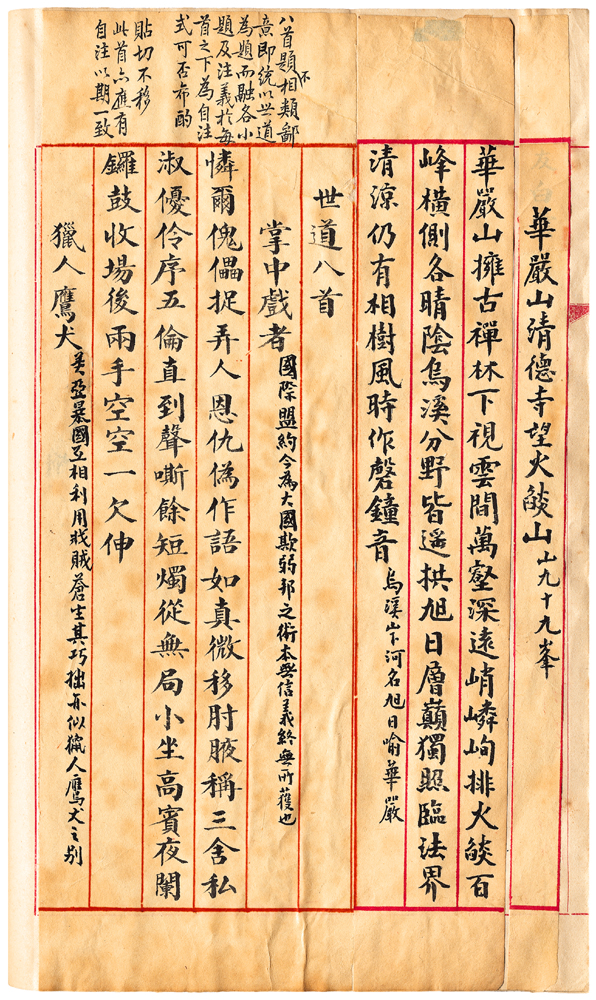 華嚴山清德寺望火燄山 山九十九峯
華嚴山擁古禪林下視雲間萬壑深遠峭嶙峋排火燄百
峰橫側各晴陰烏溪分野皆遥拱旭日層巔獨照臨法界
清涼仍有相樹風時作磬鐘音 烏溪山下河名旭日喻華嚴
八首題不相類鄙
意即統以世道
為題而融各小
題及注義於每
首之下為自注
式可否希酌
世道八首
掌中戲者 國際盟約今為大國欺弱邦之術本無信義終無所獲也
憐爾傀儡捉弄人恩仇偽作語如真微移肘腋稱三舍私
淑優伶序五倫直到聲嘶餘短燭從無局小坐高賓夜闌
鑼鼓收場後兩手空空一欠伸
貼切不移
此首亦應有
自注以期一致
獵人鷹犬 美亞暴國互相利用戕賊蒼生其巧拙亦似獵人鷹犬之別